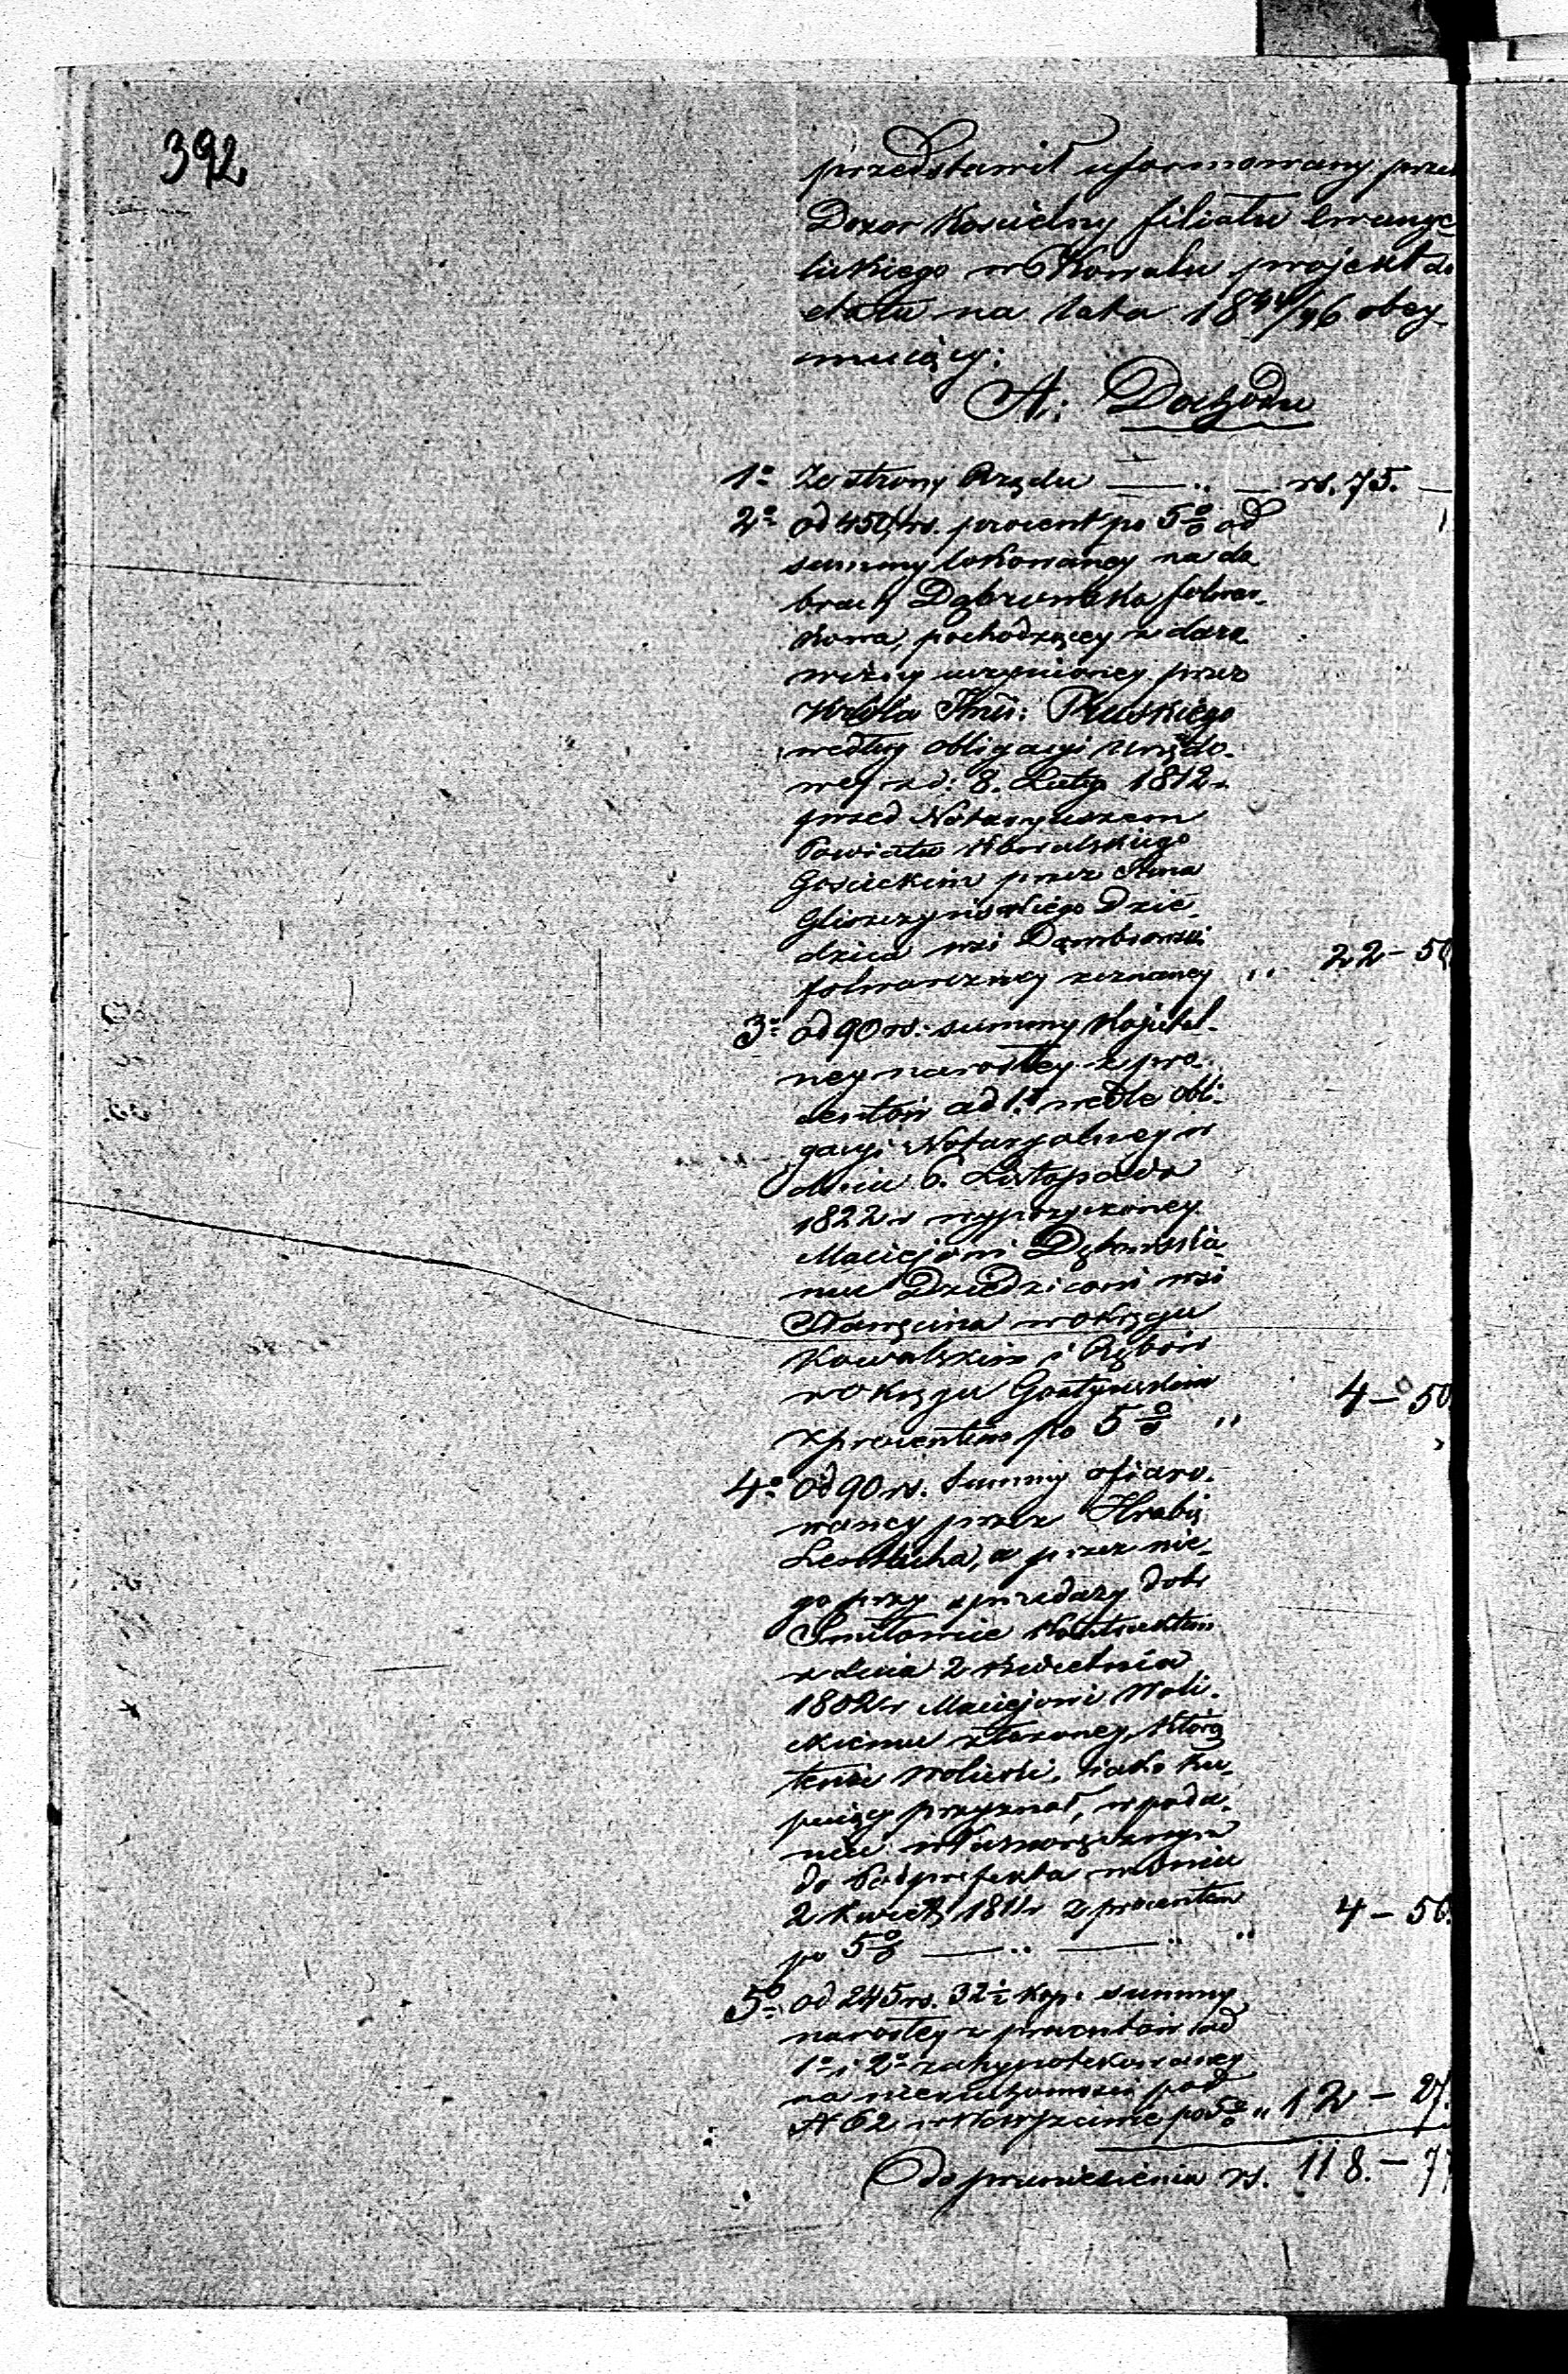 392
przedstawił uformowany przez
Dozor Kościelny filiału Ewange
lickiego w Kowalu projekt do
etatu na lata 18 /46 obey
muiący:
A: Dochodu
1º Ze strony Rządu — „ — rs. 75. —
2º od 450 rs. procent po 5% od
summy lokowaney na do
brach Dąbrowska folwar-
kowa, pochodzącey z daro-
wizny uczynioney przez
Króla Pruskiego
według obligacyi urzędo-
wey z d: 8. Lutego 1812 r.
przed Notaryuszem
Powiatu Kowalskiego
Gosieckim przez
Gliszczyńskiego Dzie-
dzica wsi Dąmbrowki
folwarczney zeznaney „ 22 – 50
3º od 90 rs. summy Kapital-
ney narosłey z pro-
centów ad 1º wedle obli-
gacyi Notaryalney w
dniu 6. Listopada
1822 r wypożyczoney
Maciejowi
mu Dziedzicowi wsi
w okręgu
Kowalskim i
w okręgu Gostyńskim
z procentem po 5% „ 4 – 50
4º od 90 rs. Summy ofiaro-
waney przez Hrabię
a przez nie-
go przy sprzedaży dobr
Smiłowic Kontraktem
z dnia 2 Kwietnia
1802 r Maciejowi Woli-
ckiemu złożoney, którą
tenże Wolicki, iako ku-
puiący przyznał, w poda-
niu własnoręcznym
do Podprefekta w dniu
2 Kwiet. 1811 r z procentem
po 5% — „ — „ „ 4 – 50.
5º od 245 rs. 32½ kop. summy
narosłey z procentów od
1º i 2º zahypotekowaney
na nieruchomości pod
N 62 w „ 12 – 27.
do przeniesienia rs. 118. – 77